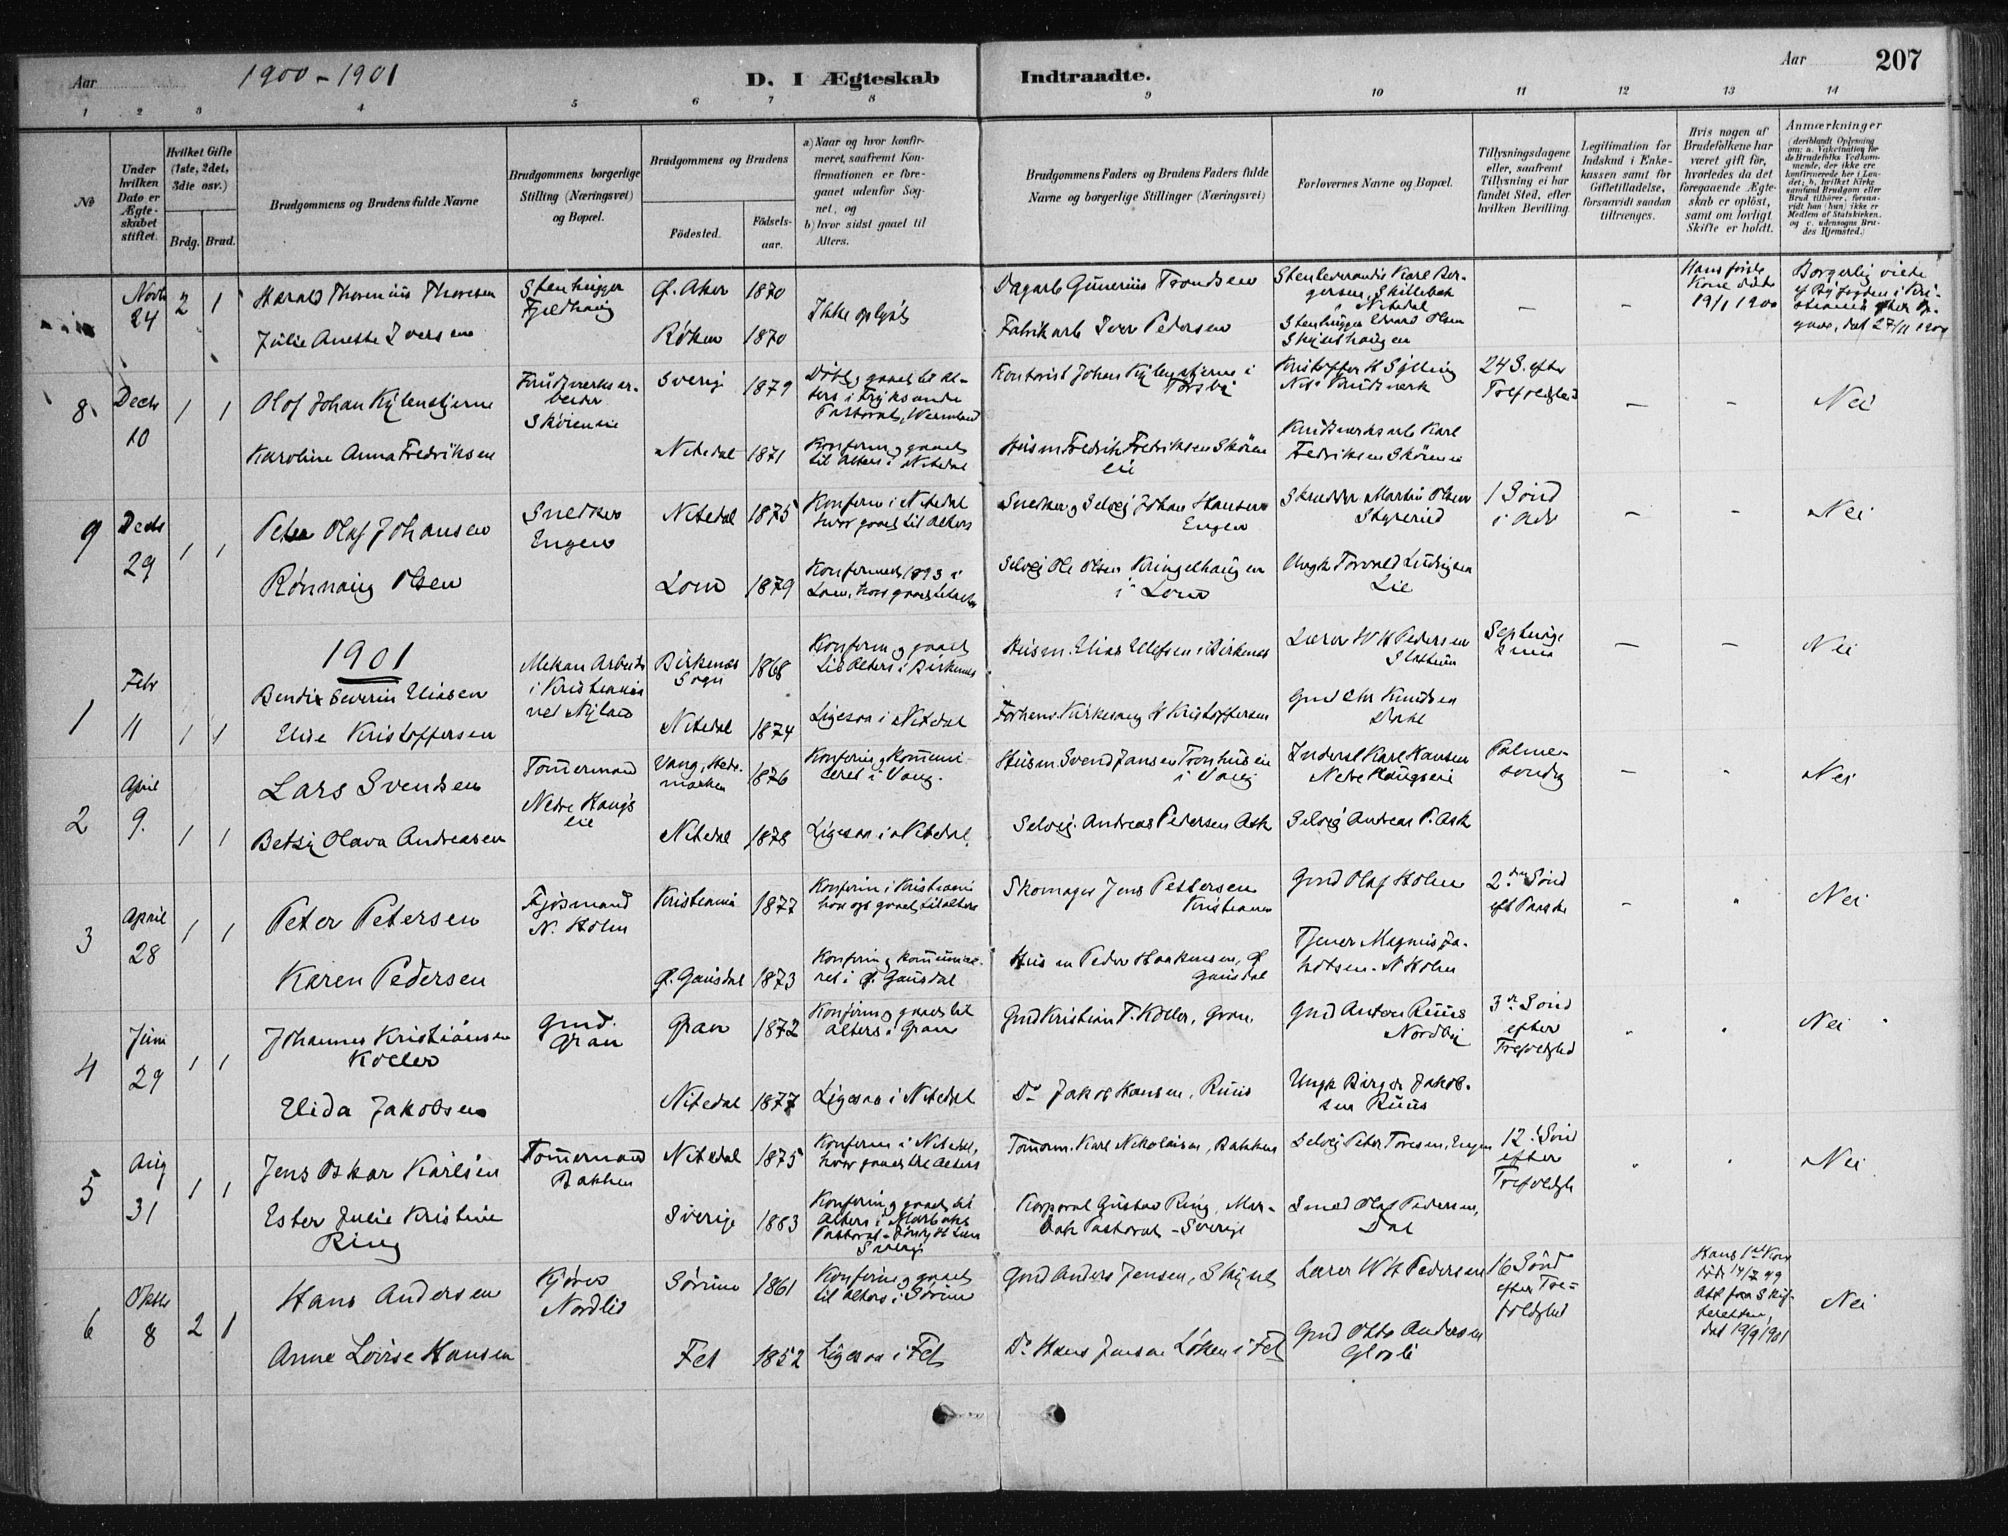 Aar 1900-1901 D. I Ægteskab Indtraadte. Aar 207
1 2 3 4 5 6 7 8 9 10 11 12 13 14
No
Under hvilken Dato er Ægteskabet stiftet.
Hvilket Gifte (1ste, 2det, 3die osv.)
Brdg. Brud.
Brudgommens og Brudens fulde Navne
Brudgommens borgerlige Stilling (Næringsvei) og Bopæl.
Brudgommens og Brudens
Fødested. Fødselsaar.
a) Naar og hvor konfirmeret, saafremt Konfirmationen er foregaaet udenfor Sognet, og
b) hvor sidst gaaet til Alters.
Brudgommens Faders og Brudens Faders fulde Navne og borgerlige Stillinger (Næringsvei)
Forlovernes Navne og Bopæl.
Tillysningsdagene eller, saafremt Tillysning ei har fundet Sted, efter hvilken Bevilling.
Legitimation for Indskud i Enkekassen samt for Giftetilladelse, forsaavidt saadan tiltrænges.
Hvis nogen af Brudefolkene har været gift før, hvorledes da det foregaaende Ægteskab er opløst, samt om lovligt Skifte er holdt.
Anmærkninger
(deriblandt Oplysning om: a. Vakcination for de Brudefolks Vedkommende, der ikke ere konfirmerede her i Landet; b. hvilket Kirkesamfund Brudgom eller Brud tilhører, forsaavidt han (hun) ikke er Medlem af Statskirken, og c. udensogns Brudes Hjemsted.)
Novb 24 2 1 Harald Thorenius Thoresen
Stenhugger Fjeldhaug
Ø. Aker 1870
Ikke oplyst
Dagarb Gunerius Trondsen
Stenleverandør Karl Bergersen, Skillebek Nitedal
Hans første Kone død 19/1 1900
Borgerlig viede
Julie Anette Iversen
Røken 1870
Fabrikarb Iver Pedersen
Stenhugger Edvard Olsen
8 Decb 10 1 1 Olof Johan Kylenstjerne
Krudtverksarbeider Skøieneie
Sverig 1879
Kontorist Johan Kylenstjerne i Torsby
Kristoffer H Sylling
24 S. efter Trefoldghed
Nei
Karoline Anna Fredriksen
Nitedal 1871
Konfirm og gaaet til Alters i Nitedal
Husm Fredrik Fredriksen Skøieneie
Krudtverksarb Karl Fredriksen
9 Decb 29 1 1 Peter Olaf Johansen
Snedker Engen
Nitedal 1875
Konfirm i Nitedal hvor gaaet til Alters
Snedker og Selvej Johan Hansen Engen
Skrædder Martin Olsen
1 Sønd i Adv
Nei
Rønnaug Olsen
Lom 1879
Konfirmeret 1893 i Lom, hvor gaaet til Alters
Selvej Ole Olsen Kringelhaugen i Lom
Ungk Torvald Ludvigsen Lie
1901
1 Febr 11 1 1 Bendix Severin Eliasen
Mekan Arbeider i Kristiania ved Nyland
Birkenæs Sogn 1868
Konfirm og gaaet til Alters i Birkenæs
Husm. Elias Ellefsen i Birkenæs
Lærer W H Pedersen Slattum
Nei
Elise Kristoffersen
Nitedal 1874
Ligesaa i Nitedal
Forhenv. Kirkesang H Kristoffersen
Gmd Chr Knudsen
2 April 9. 1 1 Lars Svendsen
Tømmermand Nedre Haugseie
Vang, Hedemarken 1876
Konfirm og kommuniceret i Vang.
Husm Svend Jansen Tronhuseie i Vang
Inderst Karl Hansen Nedre Haugseie
Palmesøndag
Nei
Betsy Olava Andreasen
Nitedal 1878
Ligesaa i Nitedal.
Selvej. Andreas Pedersen Ask
Selvej Andreas P. Ask
3 April 28 1 1 Peter Petersen
Fjøsmand N. Holm
Kristiania 1877
Konfirm i Kristiania hvor ogs gaaet til Alters
Skomager Jens Pettersen Kristiania
Gmd Olaf Holm
2den Sønd eft Paaske
Nei
Karen Pedersen
Ø. Gausdal 1873
Konfirm og kommuniceret i Ø. Gausdal
Husm Peder Haakensen, Ø Gausdal
Tjener Magnus Jakobsen. N Holm
4 Juni 29 1 1 Johannes Kristiansen Koller
Gmd. Gran
Gran 1872
Konfirm og gaaet til Alters i Gran
Gmd Kristian T. Koller, Gran.
Gmd Anton Ruus Nordby
3de Sønd efter Trefoldghed
Nei
Elida Jakobsen
Nitedal 1877
Ligesaa i Nitedal
Do Jakob Hansen, Ruus
Ungk Birger Jakobsen Ruus
5 Aug 31 1 1 Jens Oskar Karlsen
Tømmermand Bakken
Nitedal 1875
Konfirm i Nitedal, hvor gaaet til Alters
Tømmerm. Karl Nikolaisen, Bakken
Selvej Peter Toresen, Engen
12. Sønd efter Trefoldgh
Nei
Ester Julie Kristine Ring
Sverige 1883
Korporal Gustav Ring, Marbak Pastorat - Sverige
Smed Olaf Pedersen, Dal
6 Oktbr 8 2 1 Hans Andersen
Kjører Nordlie
Sørum 1861
Konfirm og gaaet til Alters i Sørum
Gmd Anders Jensen, Skjøsel
Lærer W H Pedersen
16 Sønd efter Trefoldghed
Hans 1ste Kone død 14/7 99 Att fra Skifteretten, dat 19/9 1901
Nei
Anne Lovise Hansen
Fet 1852
Ligesaa i Fet
Do Hans Jensen Løken i Fet
Gmd Otto Andersen Glosli